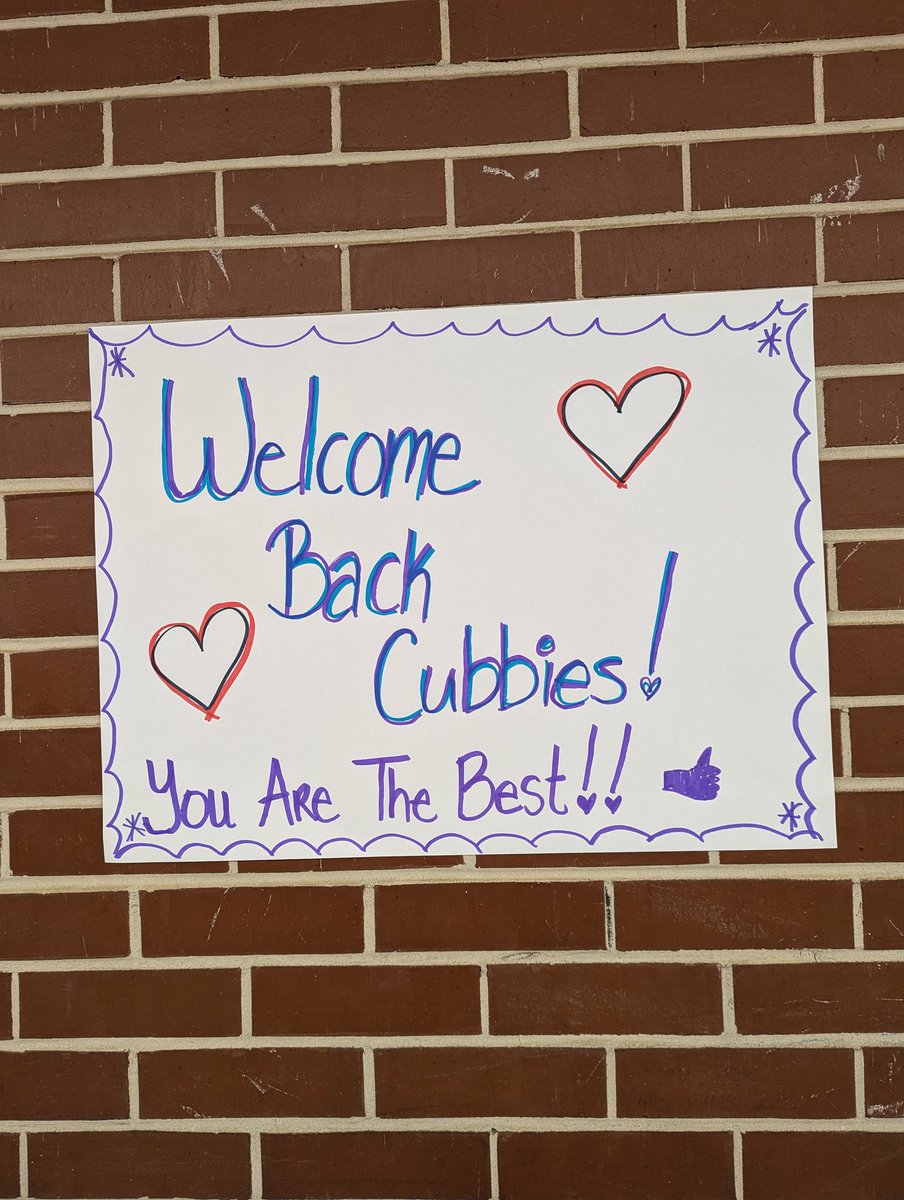 Welcome
Back
Cubbies!
You Are The Best!!